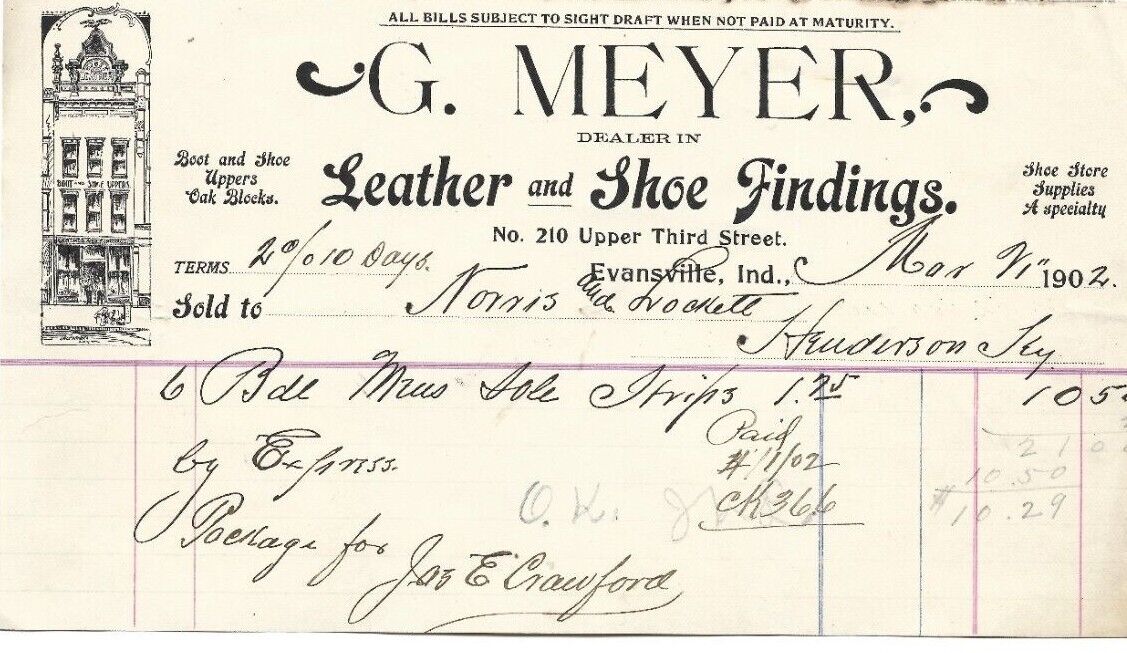 ALL BILLS SUBJECT TO SIGHT DRAFT WHEN NOT PAID AT MATURITY.
G. MEYER,
DEALER IN
Boot and Shoe
Uppers
Oak Blocks.
Leather and Shoe Findings.
Shoe Store
Supplies
A specialty
BOOT AND SHOE UPPERS
No. 210 Upper Third Street.
TERMS 2% 10 Days.
Evansville, Ind., Mar 1902.
Sold to Norris and Lockett
Henderson Ky
6 Bdl Mens Sole Strips 1.75 10 5
Paid
2 1 0
by Express. 4/1/02 10.50
O.K. CK 366 $10.29
Package for
Jas E Crawford